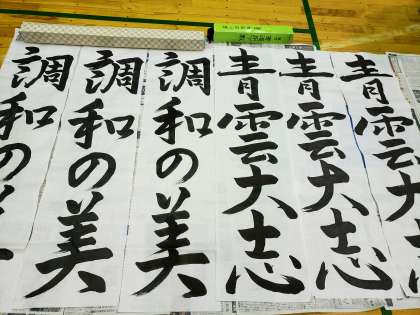 青雲大志
青雲大志
青雲大志
調和の美
調和の美
調和の美